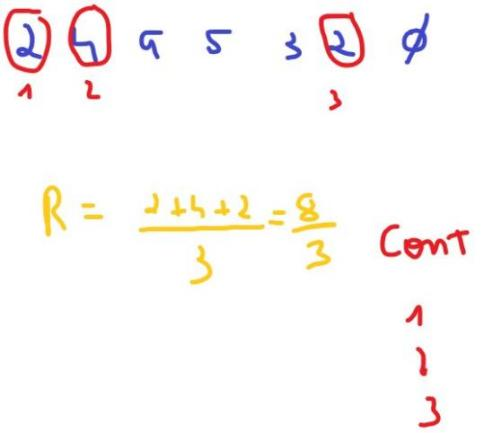 2 4 9 5 3 2 0
1 2 3
R = 2+4+2 / 3 = 8 / 3
Cont
1
2
3